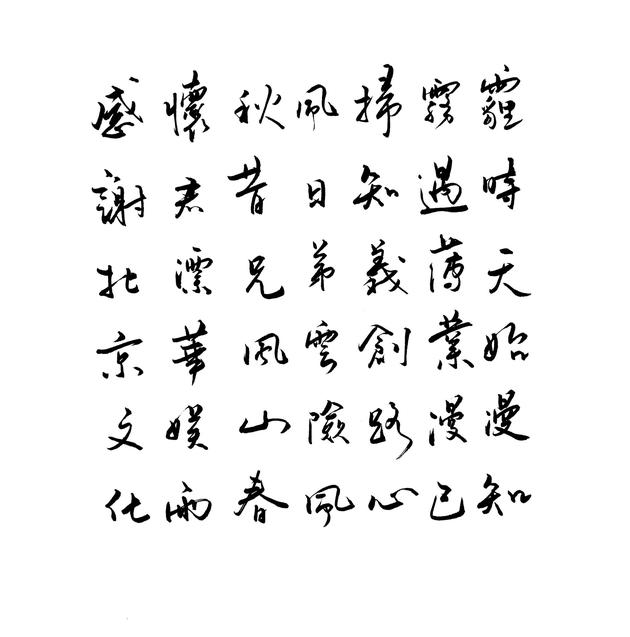 感懷秋風掃霧霾
謝君昔日知遇時
北漂兄弟義薄天
京華風雲創業始
文娱山險路漫漫
化雨春風心已知